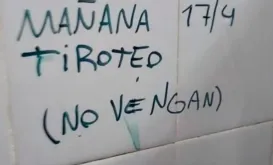 MAÑANA 17/4
TIROTEO
(NO VENGAN)